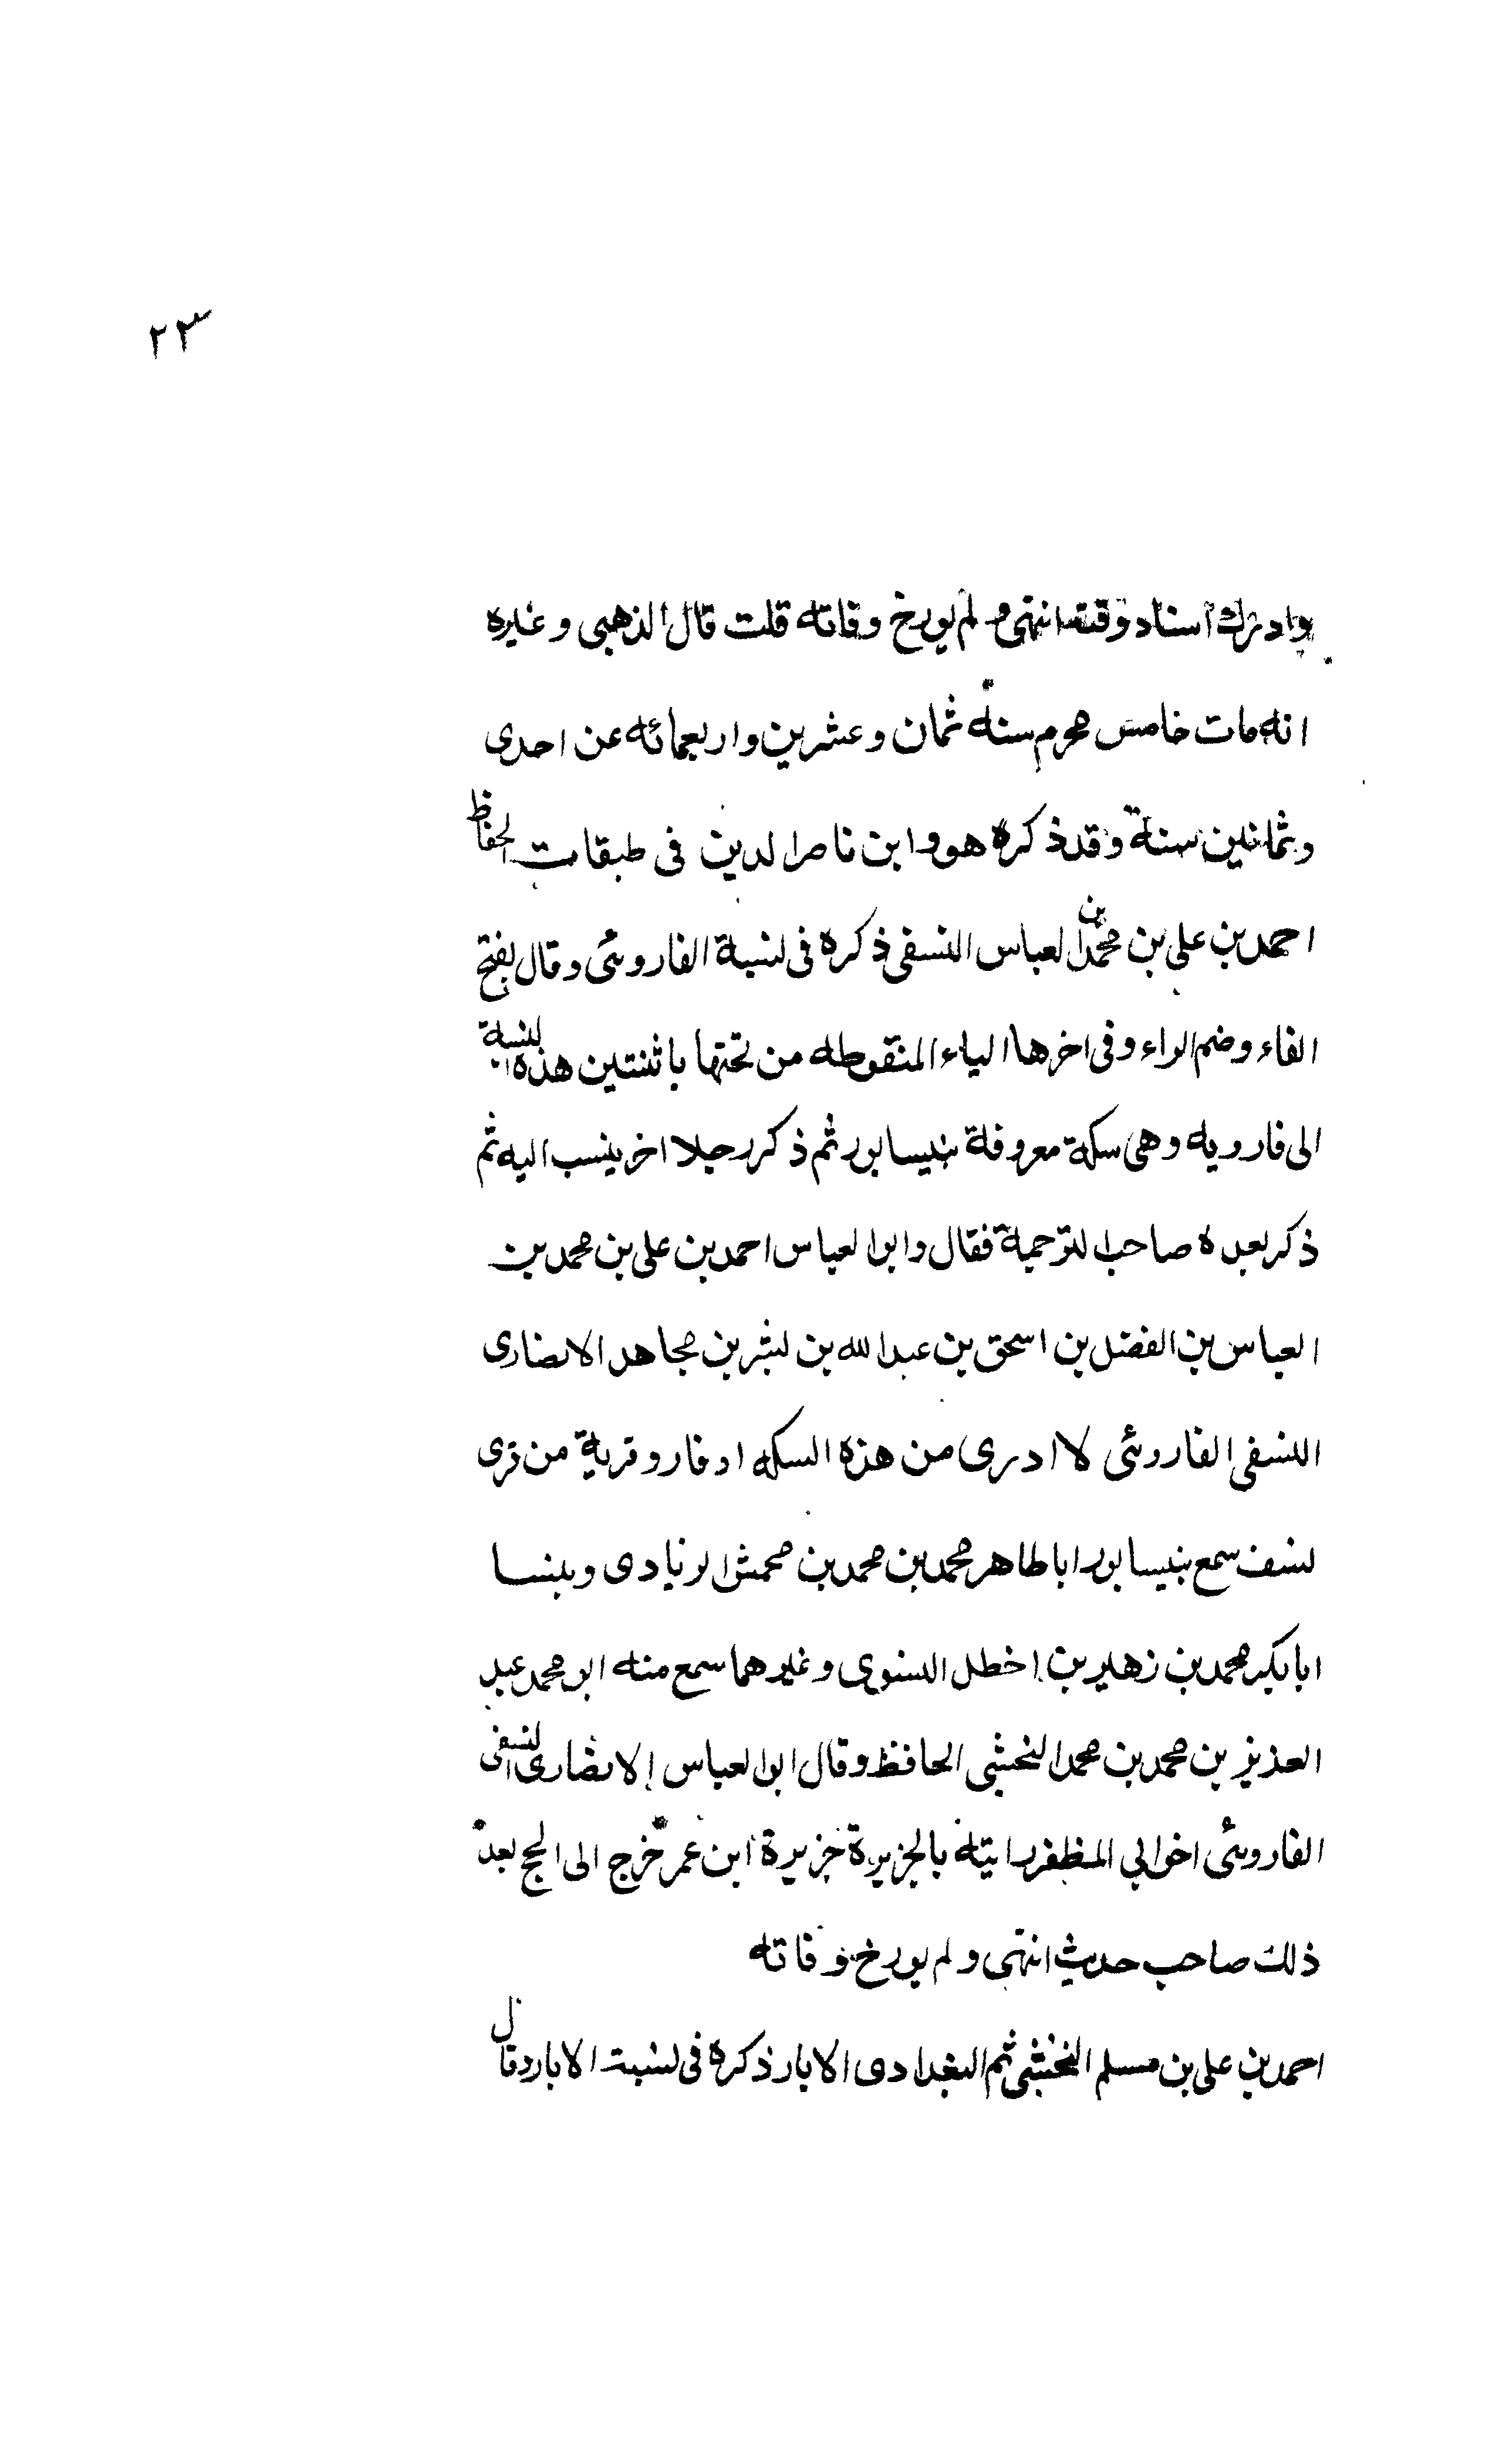 ٢٣
وادرك اسناد وقته انتهى ولم يورخ وفاته قلت قال الذهبى وغيره
انه مات خامس محرم سنة ثمان وعشرين واربعمائه عن احدى
وثمانين سنة وقد ذكره هو وابن ناصر الدين فى طبقات الحفاظ
احمد بن على بن محمد بن العباس النسفى ذكره فى نسبة الفاروئى وقال بفتح
الفاء وضم الراء وفى اخرها الياء المنقوطه من تحتها باثنتين هذه النسبة
الى فارويه وهى سكة معروفة بنيسابور ثم ذكر رجلا اخر ينسب اليه ثم
ذكر بعده صاحب الترجمة فقال وابو العباس احمد بن على بن محمد بن
العباس بن الفضل بن اسحق بن عبد الله بن بشر بن مجاهد الانصارى
النسفى الفاروئى لا ادرى من هذه السكه او فارو قرية من قرى
نسف سمع بنيسابور ابا طاهر محمد بن محمد بن محمش الزيادى وبنسا
ابا بكر محمد بن زهير بن اخطل النسوى وغيرهما سمع منه ابو محمد عبد
العزيز بن محمد بن محمد النخشبى الحافظ وقال ابو العباس الانصارى النسفى
الفاروئى اخو ابى المظفر رايته بالجزيرة جزيرة ابن عمر خرج الى الحج بعد
ذلك صاحب حديث انتهى ولم يورخ وفاته
احمد بن على بن مسلم النخشبى ثم البغدادى الابار ذكره فى نسبت الابار وقال